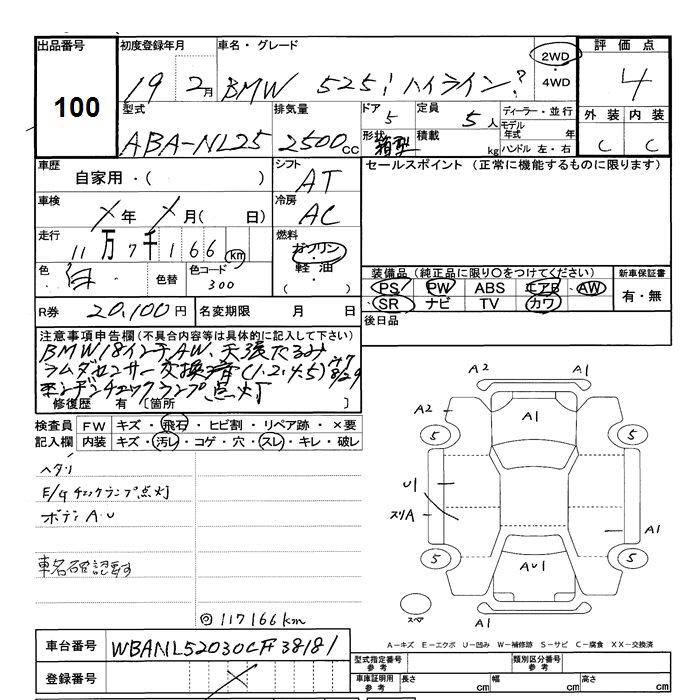 出品番号 初度登録年月 車名・グレード 2WD ・ 4WD 評価点
100 19 2月 BMW 525i ハイライン? 4
型式 排気量 ドア 定員 ディーラー・並行 外装 内装
ABA-NL25 2500cc 5 5人 モデル年式 年 C C
形状 箱型 積載 kg ハンドル 左・右
車歴 シフト セールスポイント (正常に機能するものに限ります)
自家用・( ) AT
車検 冷房
X年 X月( 日) AC
走行 燃料
11万7千166km ガソリン・軽油・
色 色替 色コード 装備品(純正品に限り○をつけてください) 新車保証書
白 300 PS PW ABS エアB AW 有・無
R券 20,100円 名変期限 月 日 SR ナビ TV カワ
後日品
注意事項申告欄(不具合内容等は具体的に記入して下さい)
BMW18インチAW、天張たるみ
ラムダセンサー交換済(1.2.4.5)
エンヂンチェックランプ点灯
修復歴 有 [箇所 ]
検査員 FW キズ・飛石・ヒビ割・リペア跡・×要
記入欄 内装 キズ・汚レ・コゲ・穴・スレ・キレ・破レ
ヘタリ
E/gチェックランプ点灯
ボディA.U
車名確認要す
◎117166km
A2 A1
A2 A1
5 5
U1
スリA A1
5 5
AU1
スペア A1
A－キズ E－エクボ U－凹み W－補修跡 S－サビ C－腐食 XX－交換済
車台番号 WBANL52030CF38181
登録番号 X
型式指定番号 参考 類別区分番号 参考
車庫証明用 参考 長さ cm 幅 cm 高さ cm